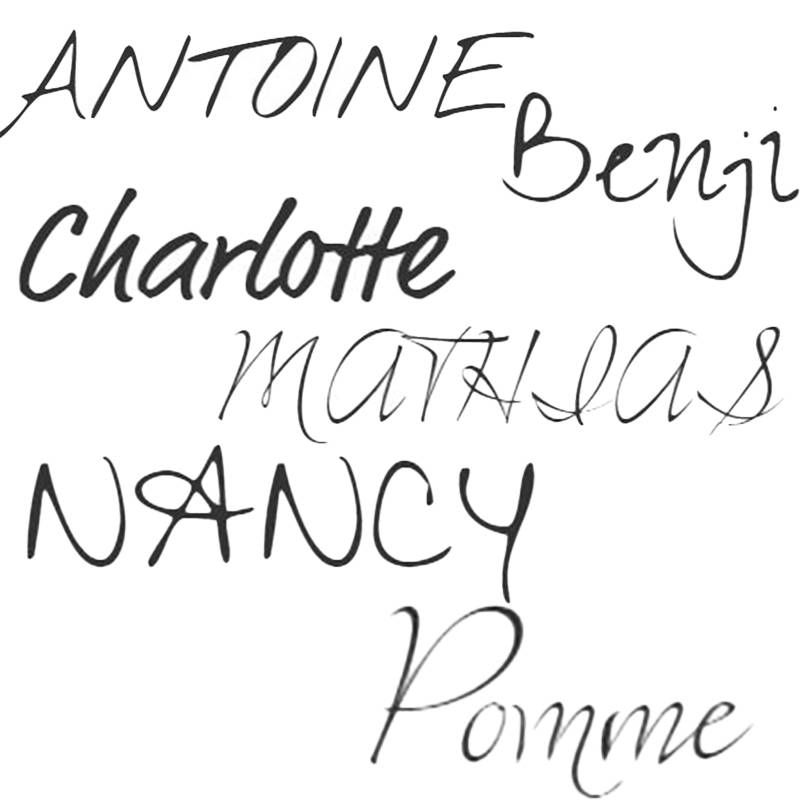 ANTOINE
Benji
Charlotte
MATHIAS
NANCY
Pomme